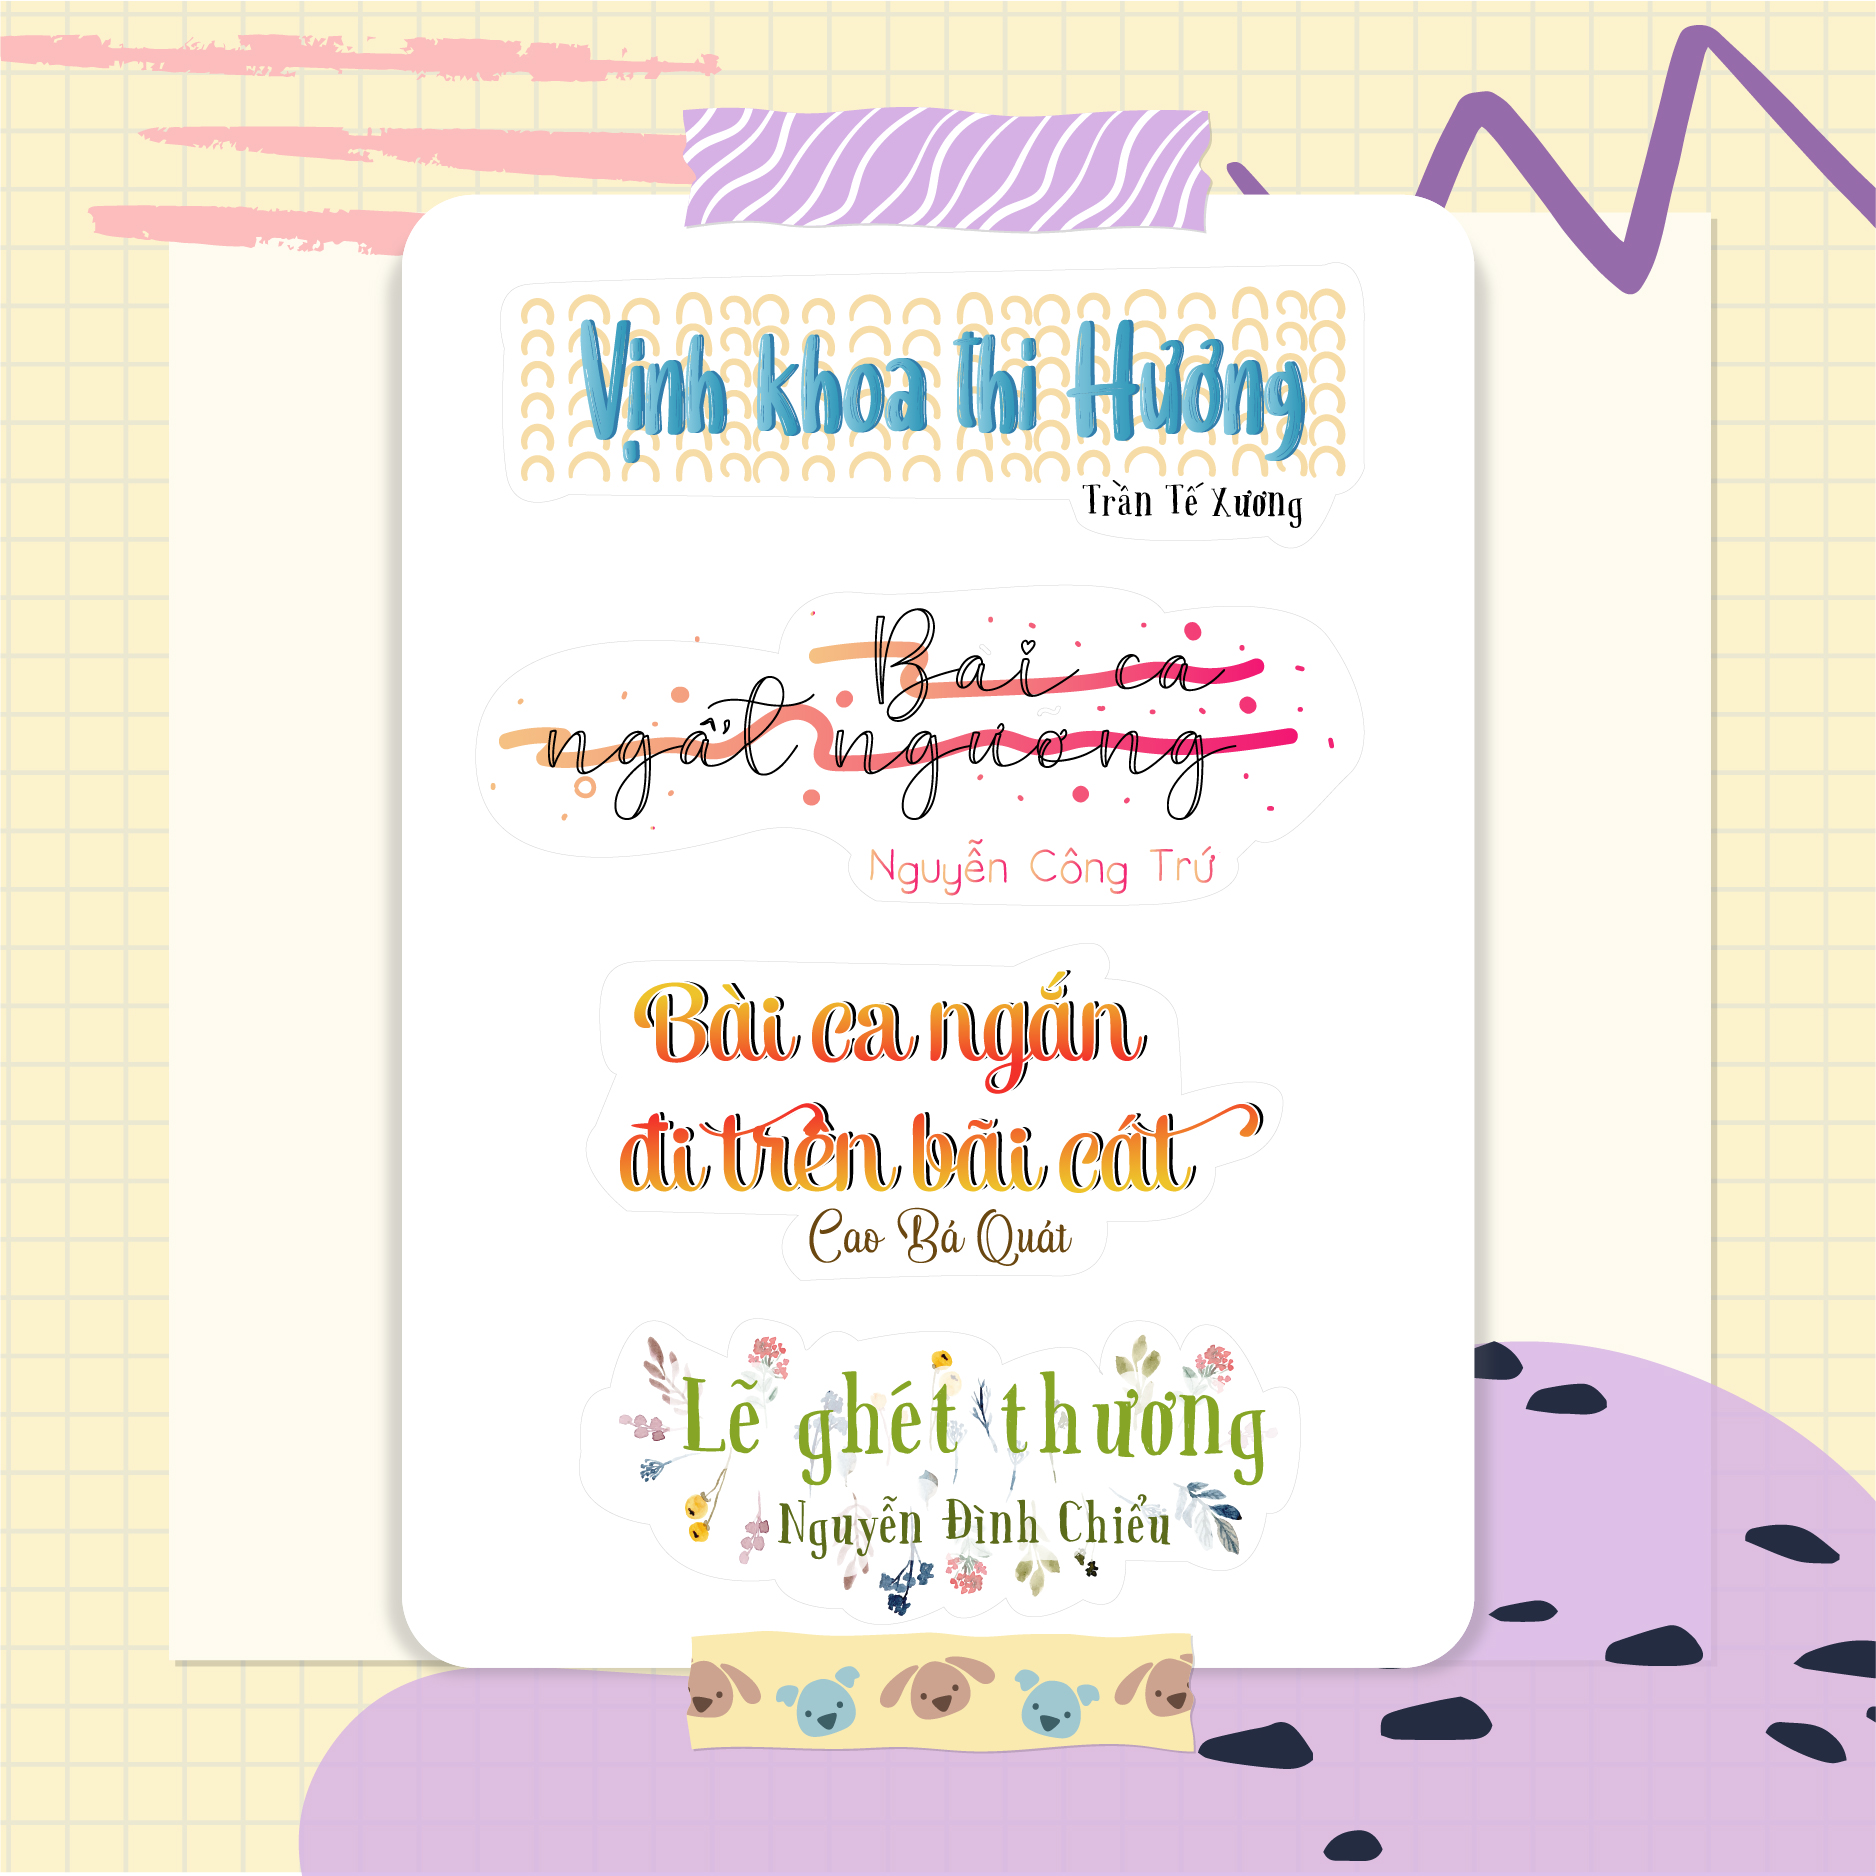 Vịnh khoa thi Hương
Trần Tế Xương
Bài ca
ngất ngưỡng
Nguyễn Công Trứ
Bài ca ngắn
đi trên bãi cát
Cao Bá Quát
Lẽ ghét thương
Nguyễn Đình Chiểu